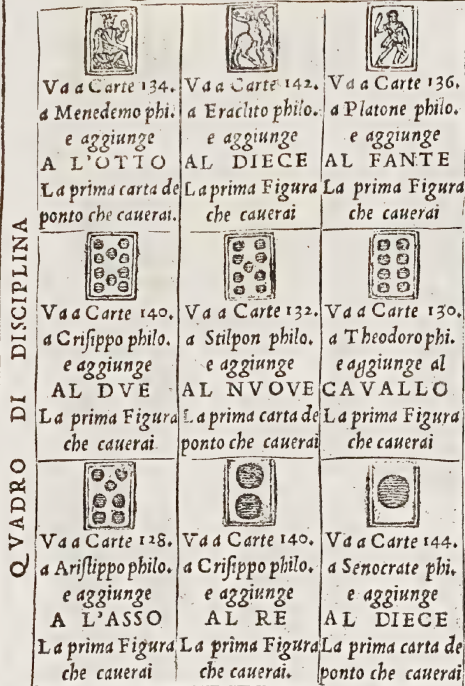 QVADRO DI DISCIPLINA
Va a Carte 134.
a Menedemo phi.
e aggiunge
A L'OTTO
La prima carta de
ponto che cauerai.
Va a Carte 142.
a Eraclito philo.
e aggiunge
AL DIECE
La prima Figura
che cauerai
Va a Carte 136.
a Platone philo.
e aggiunge
AL FANTE
La prima Figura
che cauerai
Va a Carte 140.
a Criſippo philo.
e aggiunge
AL DVE
La prima Figura
che cauerai
Va a Carte 132.
a Stilpon philo.
e aggiunge
AL NVOVE
La prima carta de
ponto che cauerai
Va a Carte 130.
a Theodoro phi.
e aggiunge al
CAVALLO
La prima Figura
che cauerai
Va a Carte 128.
a Ariſtippo philo.
e aggiunge
A L'ASSO
La prima Figura
che cauerai
Va a Carte 140.
a Criſippo philo.
e aggiunge
AL RE
La prima Figura
che cauerai.
Va a Carte 144.
a Senocrate phi.
e aggiunge
AL DIECE
La prima carta de
ponto che cauerai